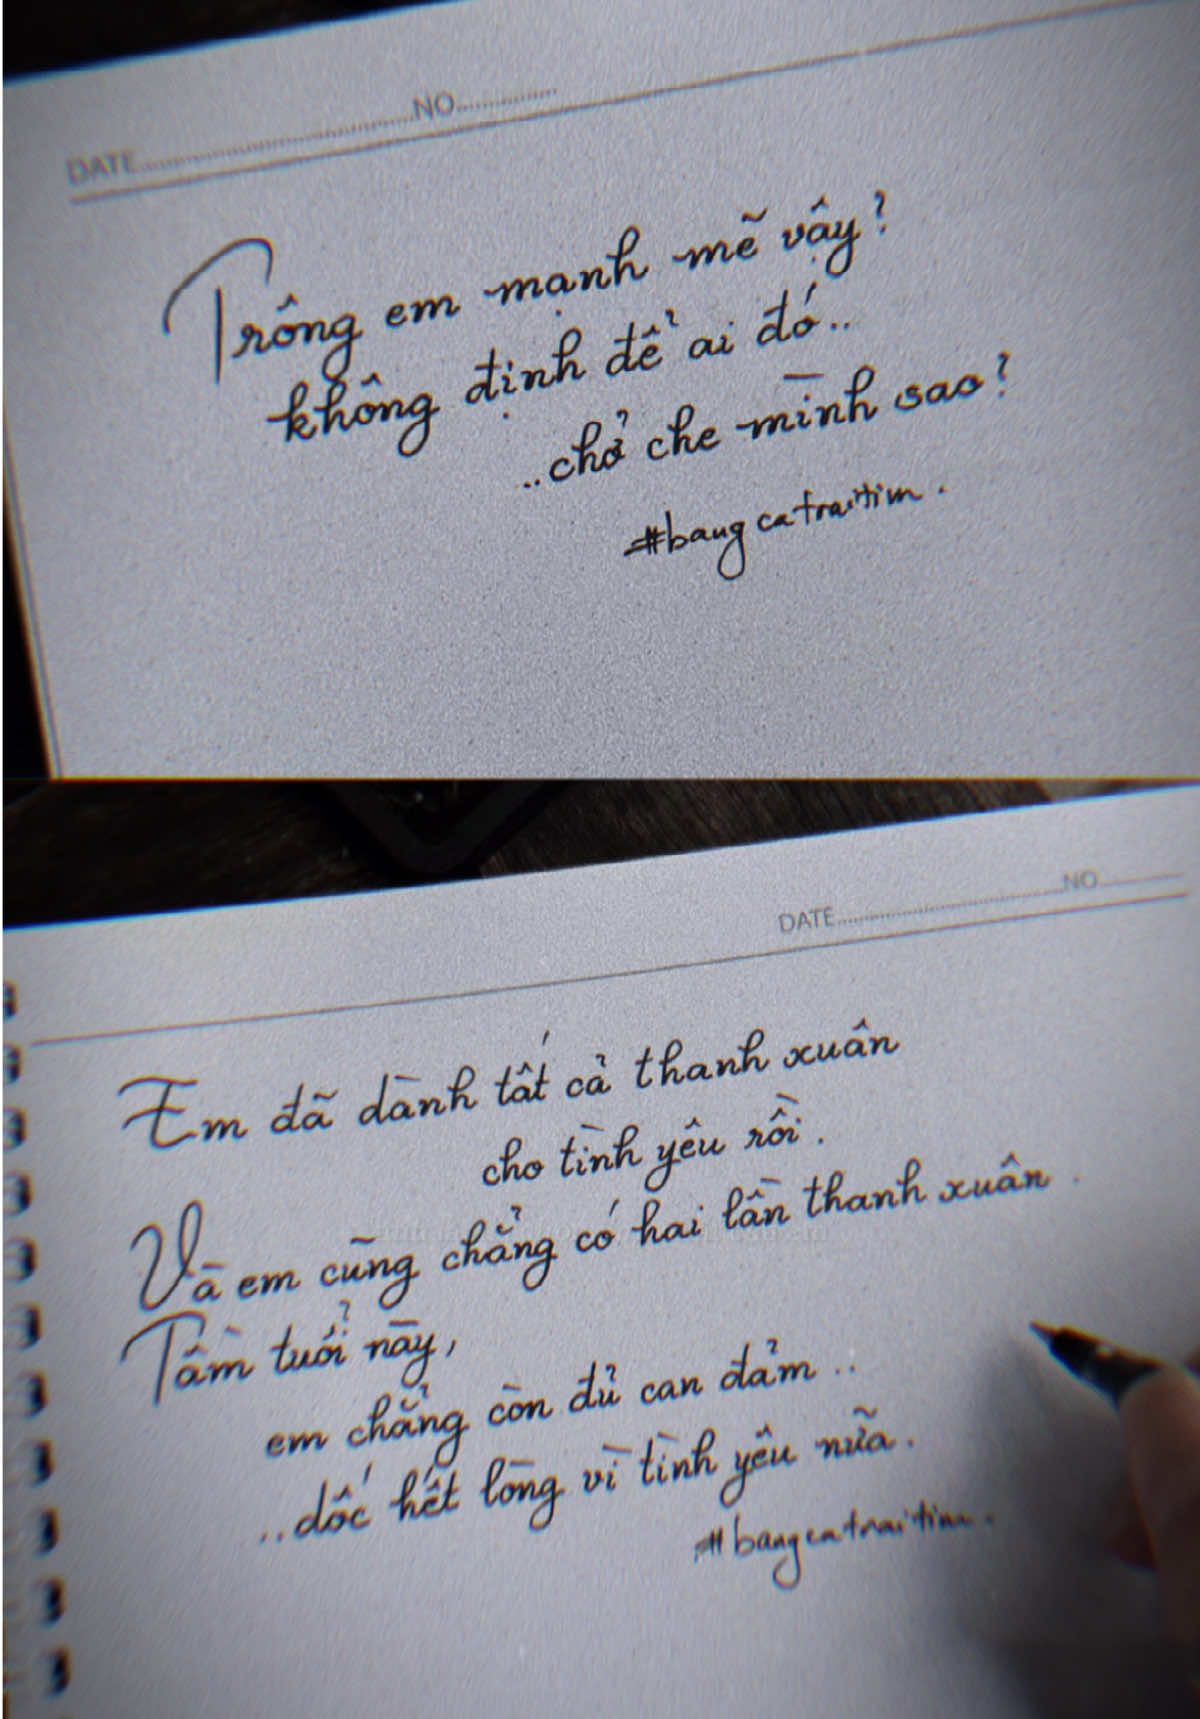 DATE........................................NO...............
Trông em mạnh mẽ vậy?
không định để ai đó..
..chở che mình sao?
#bangcatraitim.
DATE........................................NO...............
Em đã dành tất cả thanh xuân
cho tình yêu rồi.
Và em cũng chẳng có hai lần thanh xuân.
Tầm tuổi này,
em chẳng còn đủ can đảm..
..dốc hết lòng vì tình yêu nữa.
#bangcatraitim.